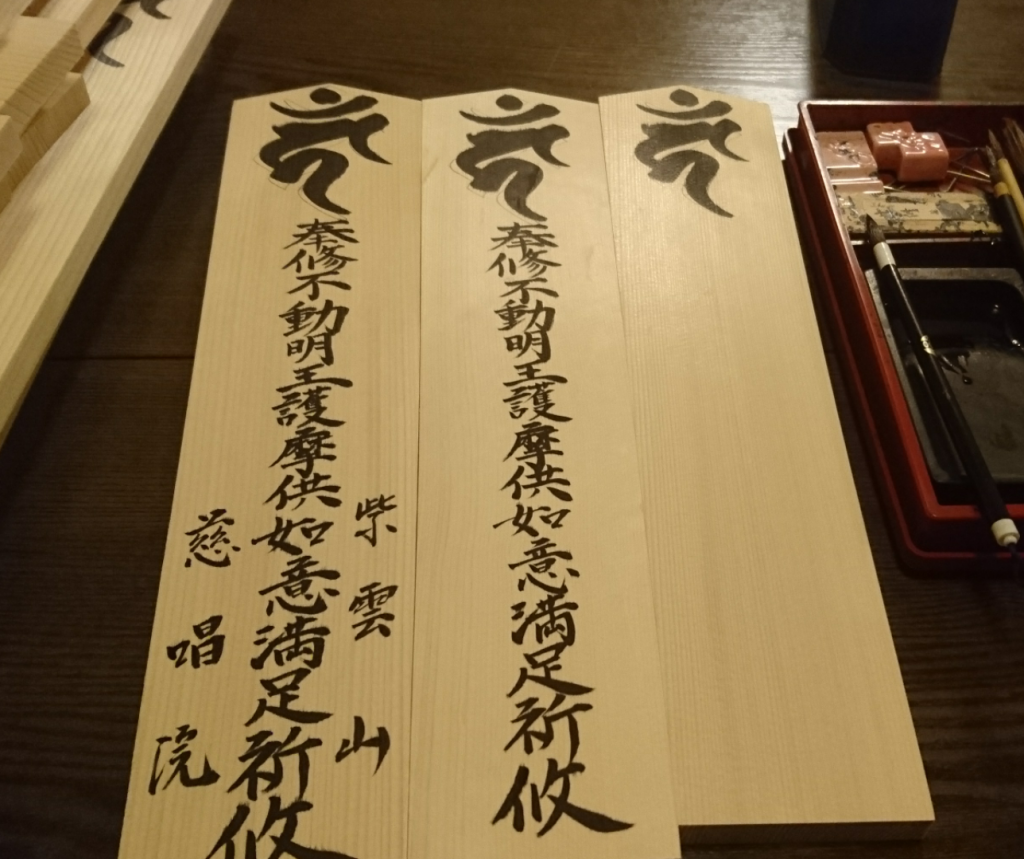 奉修不動明王護摩供如意満足祈攸
紫雲山
奉修不動明王護摩供如意満足祈攸
慈唱院